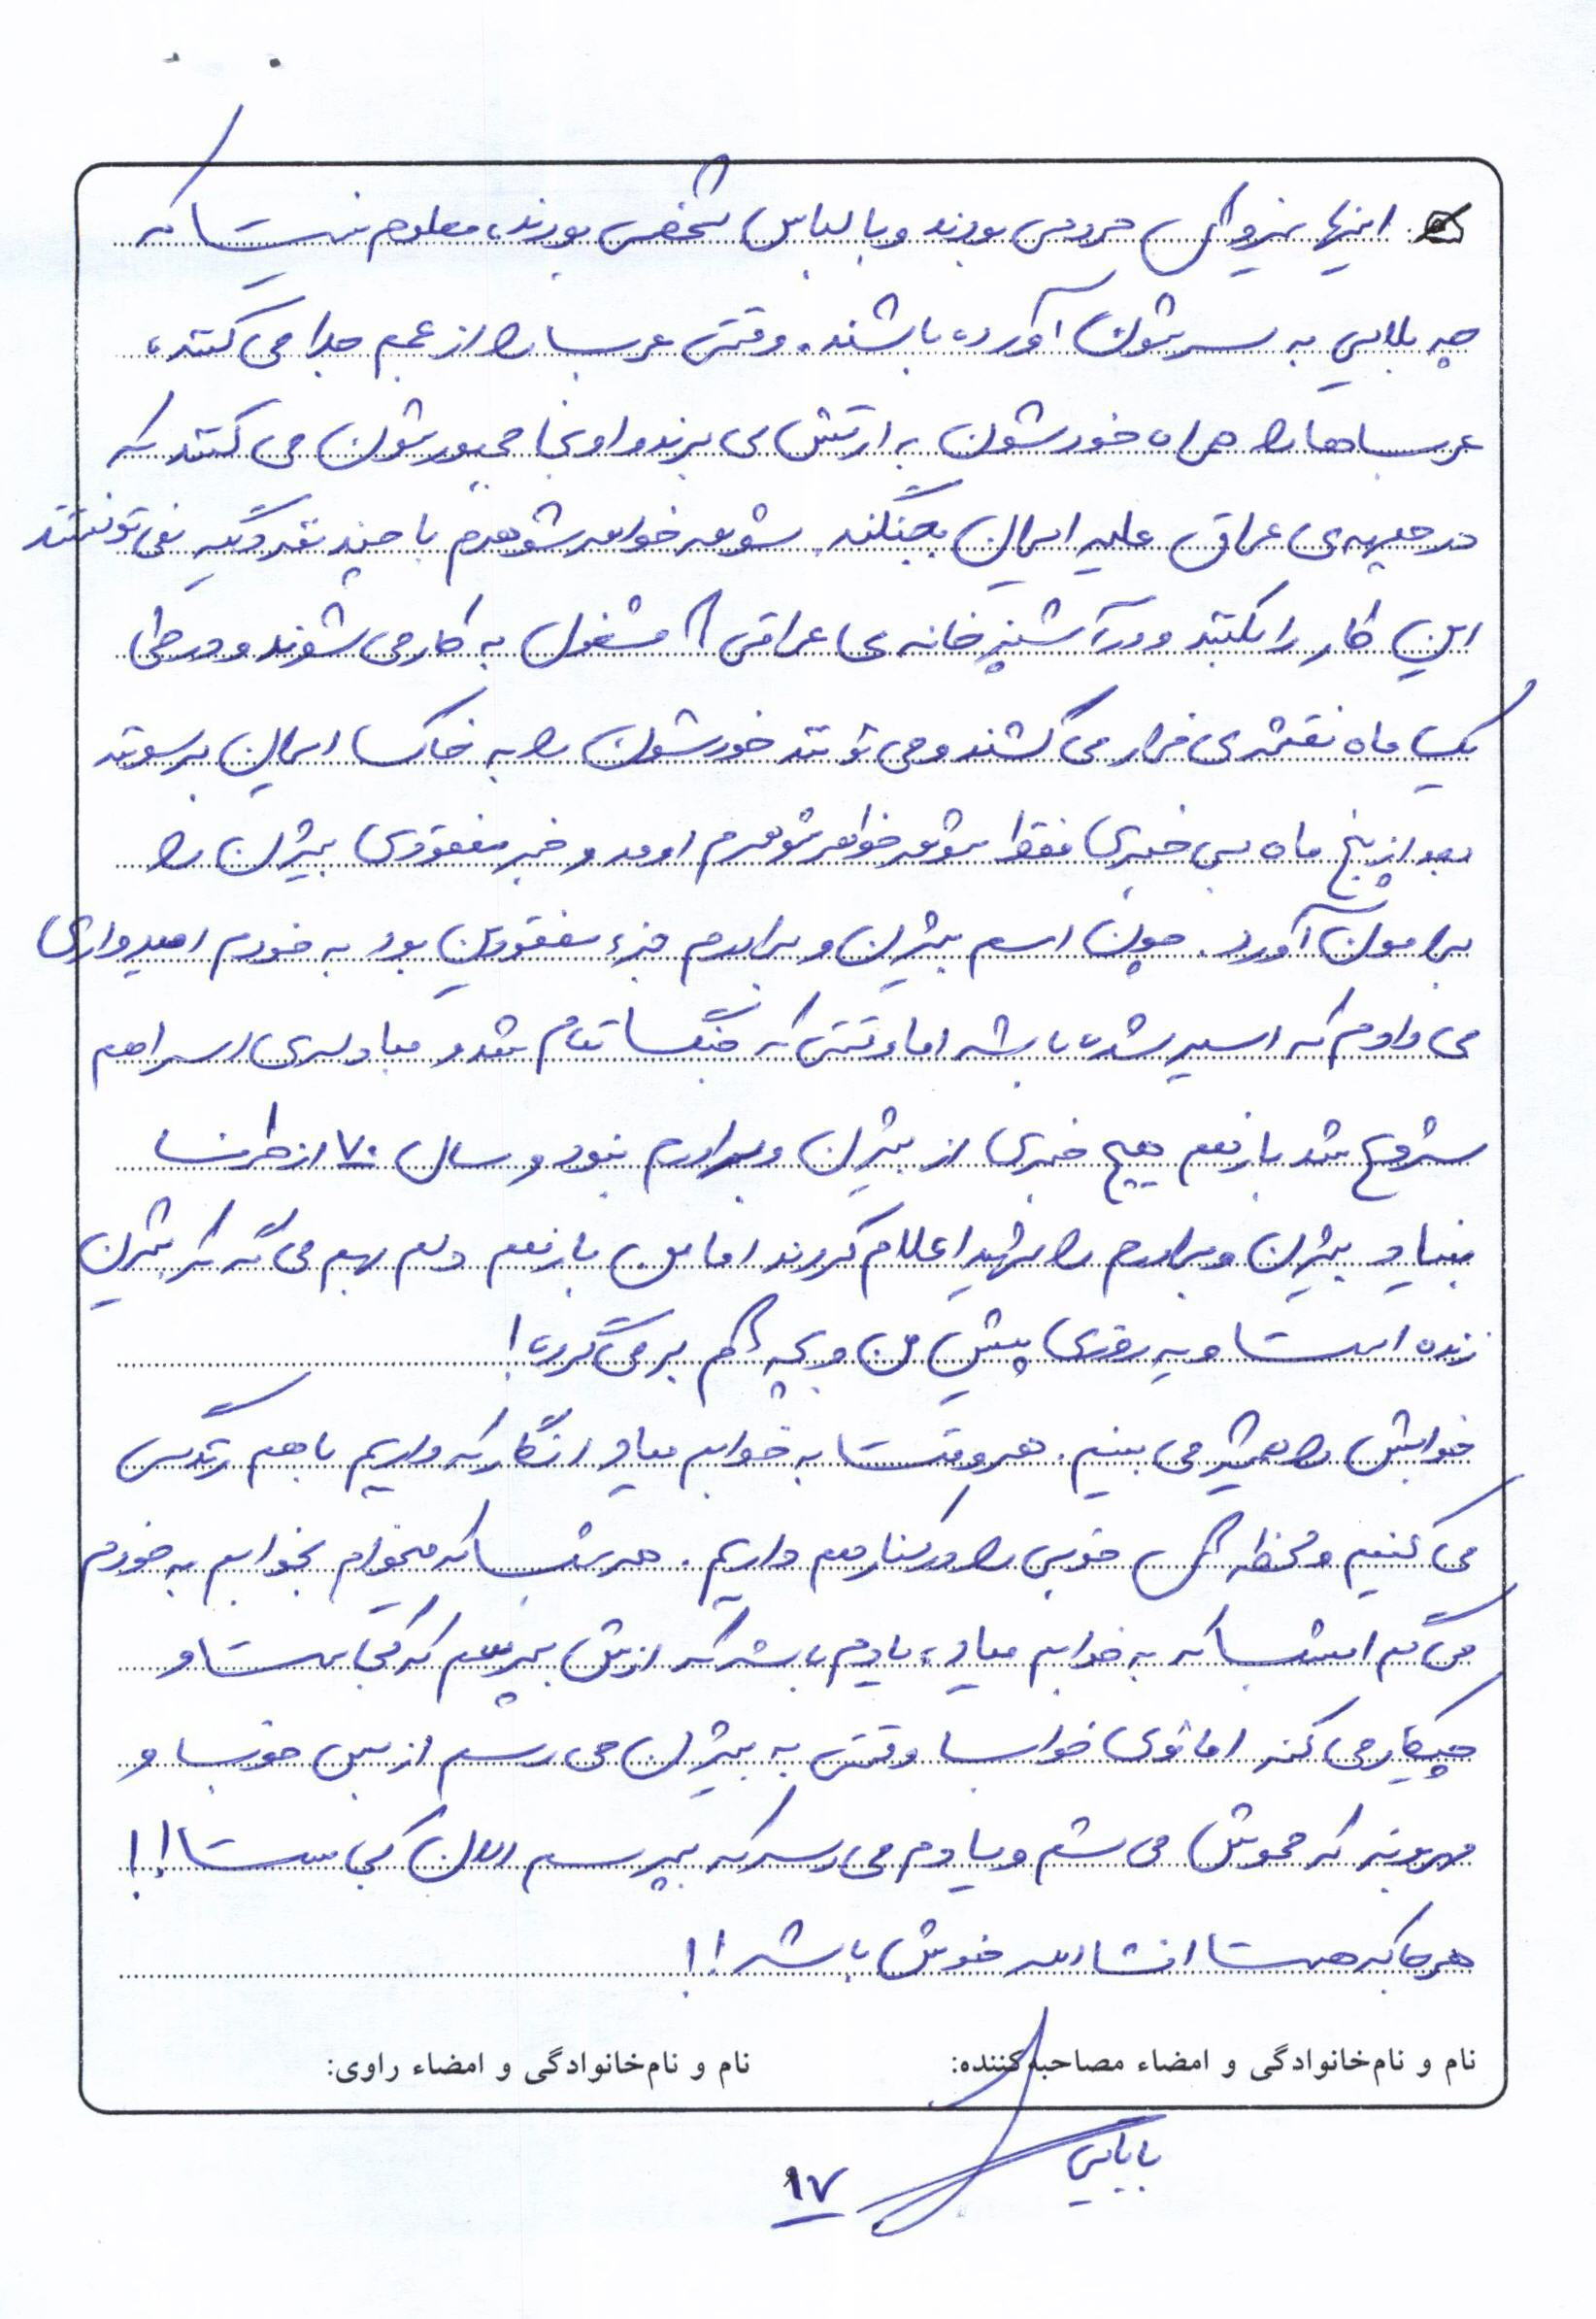 اینها نیروهای مردمی بودند و با لباس شخصی بودند، معلوم نیست که
چه بلایی به سرشون آورده باشند. وقتی عرب را از عجم جدا می کنند،
عرب ها را همراه خودشون به ارتش می برند و اونجا مجبورشون می کنند که
در جبهه ی عراق علیه ایران بجنگند. شوهر خواهر شوهرم با چند نفر دیگه نمی تونستند
این کار را بکنند و در آشپزخانه ی عراقی ها مشغول به کار می شوند و در طی
یک ماه نقشه ی فرار می کشند و می تونند خودشون را به خاک ایران برسونند
بعد از پنج ماه بی خبری فقط شوهر خواهر شوهرم اومد و خبر مفقودی بیژن را
برامون آورد. چون اسم بیژن و برادرم جزء مفقودین بود به خودم امیدواری
می دادم که اسیر شده باشه اما وقتی که جنگ تمام شد و مبادله ی اسرا هم
شروع شد باز هم هیچ خبری از بیژن و برادرم نبود و سال ۷۰ از طرف
بنیاد بیژن و برادرم را شهید اعلام کردند اما من باز هم دلم بهم می گه که بیژن
زنده است و یه روزی پیش من و بچه هام برمی گرده!
خوابش را همیشه می بینم. هر وقت به خوابم میاد انگار که داریم با هم زندگی
می کنیم و لحظه های خوبی را در کنار هم داریم. هر شب که میخوام بخوابم به خودم
می گم امشب که به خوابم میاد، یادم باشه که ازش بپرسم که کجاست و
چیکار می کنه اما توی خواب وقتی به بیژن می رسم از بس خوب و
مهربونه که محوش می شم و یادم می ره که بپرسم الان کجاست!!
هرجا که هست انشاالله خوش باشه!!
نام و نام‌خانوادگی و امضاء مصاحبه‌کننده: نام و نام‌خانوادگی و امضاء راوی:
بابایی
۱۷